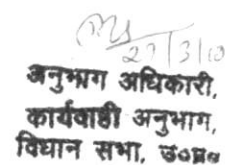 27/3/10
अनुभाग अधिकारी,
कार्यवाही अनुभाग,
विधान सभा, उ०प्र०